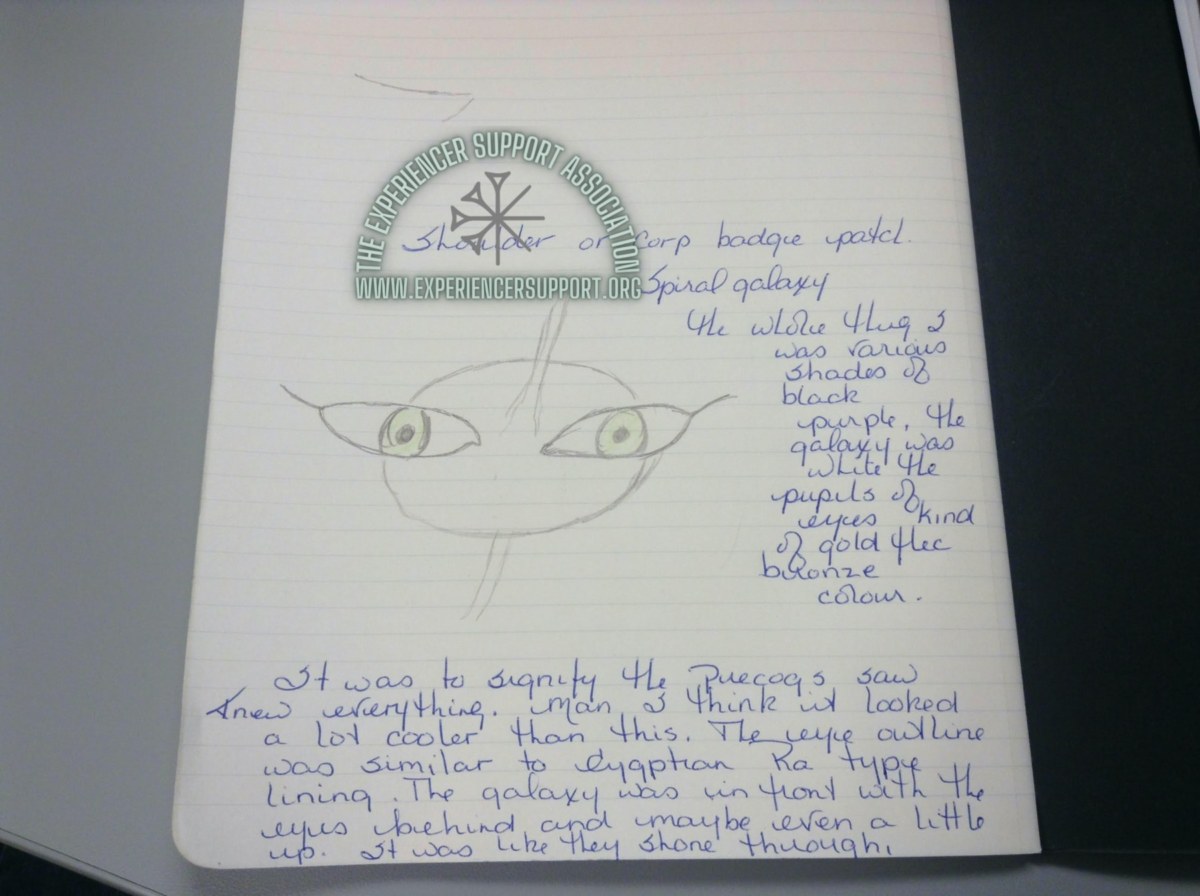 THE EXPERIENCER SUPPORT ASSOCIATION
WWW.EXPERIENCERSUPPORT.ORG
Shoulder or Corp badge patch.
Spiral galaxy
the whole thing
was various
shades of
black
purple, the
galaxy was
white the
pupils of
eyes kind
of gold flec
bronze
colour.
It was to signify the Precogs saw
knew everything. Man I think it looked
a lot cooler than this. The eye outline
was similar to Egyptian Ra type
lining. The galaxy was in front with the
eyes behind and maybe even a little
up. It was like they shone through,